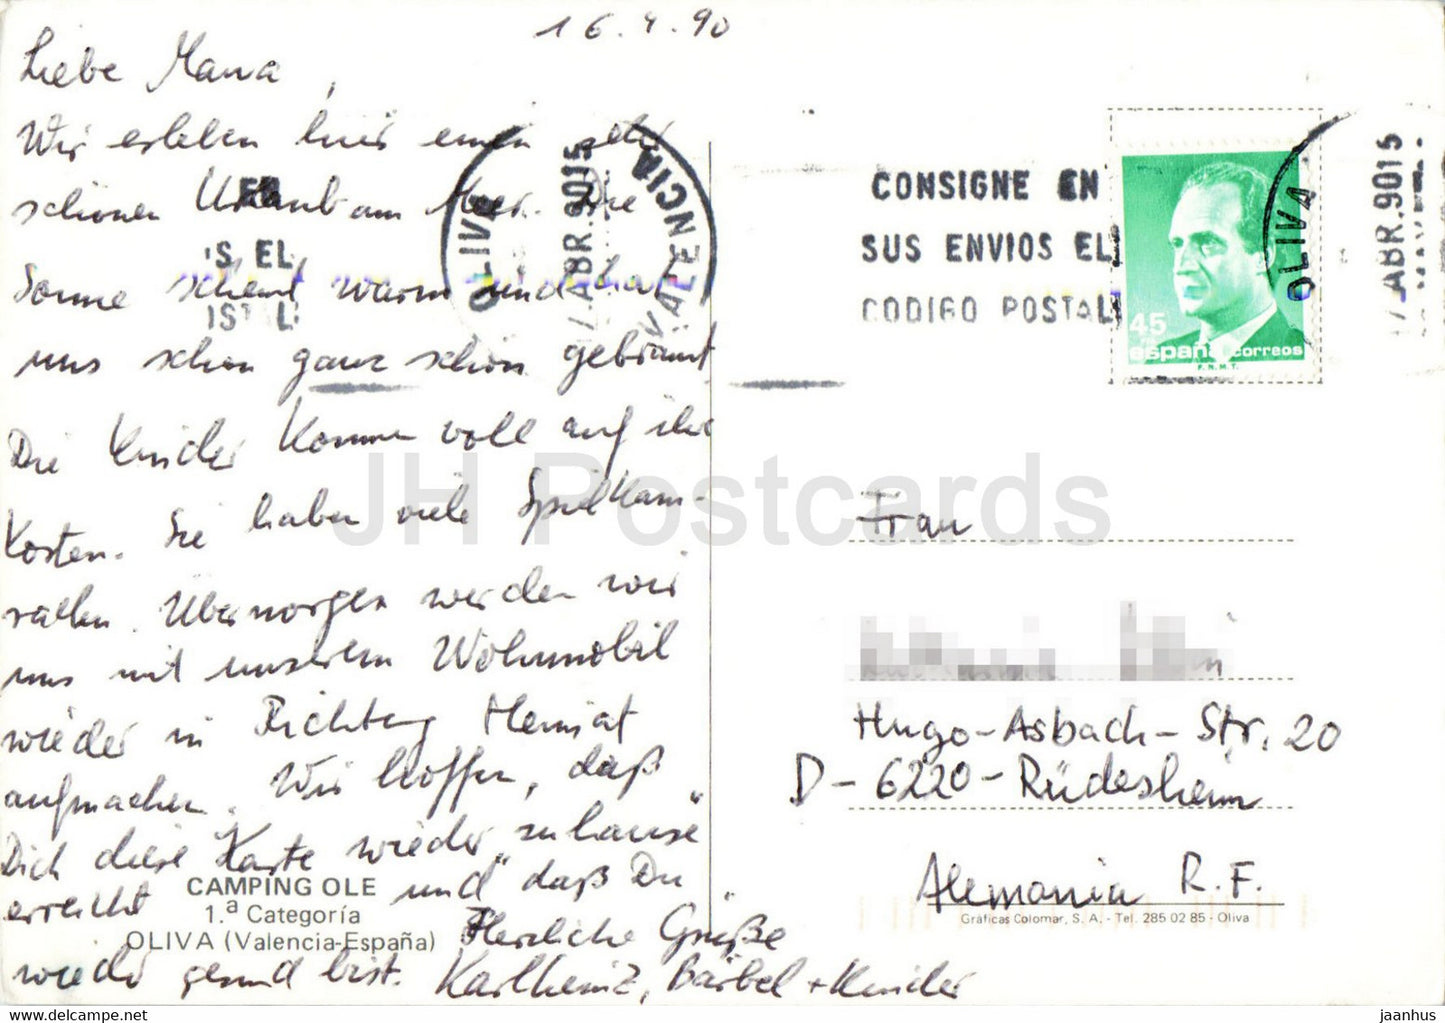 16.4.90
Liebe Mama,
Wir erleben hier einen sehr
schönen Urlaub am Meer. Die
Sonne scheint warm und hat
uns schon ganz schön gebräunt
Die Kinder kommen voll auf ihre
Kosten. Sie haben viele Spielkam-
raden. Übermorgen werden wir
uns mit unserem Wohnmobil
wieder in Richtung Heimat
aufmachen. Wir hoffen, daß
Dich diese Karte wieder „zuhause"
erreicht und daß Du
wieder gesund bist.
Herzliche Grüße
Karlheinz, Bärbel + Kinder
CAMPING OLE
1.ª Categoría
OLIVA (Valencia-España)
OLIVA
ABR.9015
VALENCIA
S EL
CONSIGNE EN
SUS ENVIOS EL
CODIGO POSTAL
45
españa correos
F.N.M.T.
OLIVA
ABR.9015
Frau
Hugo-Asbach-Str. 20
D-6220-Rüdesheim
Alemania R.F.
Gráficas Colomar, S. A. - Tel. 285 02 85 - Oliva
JH Postcards
jaanhus